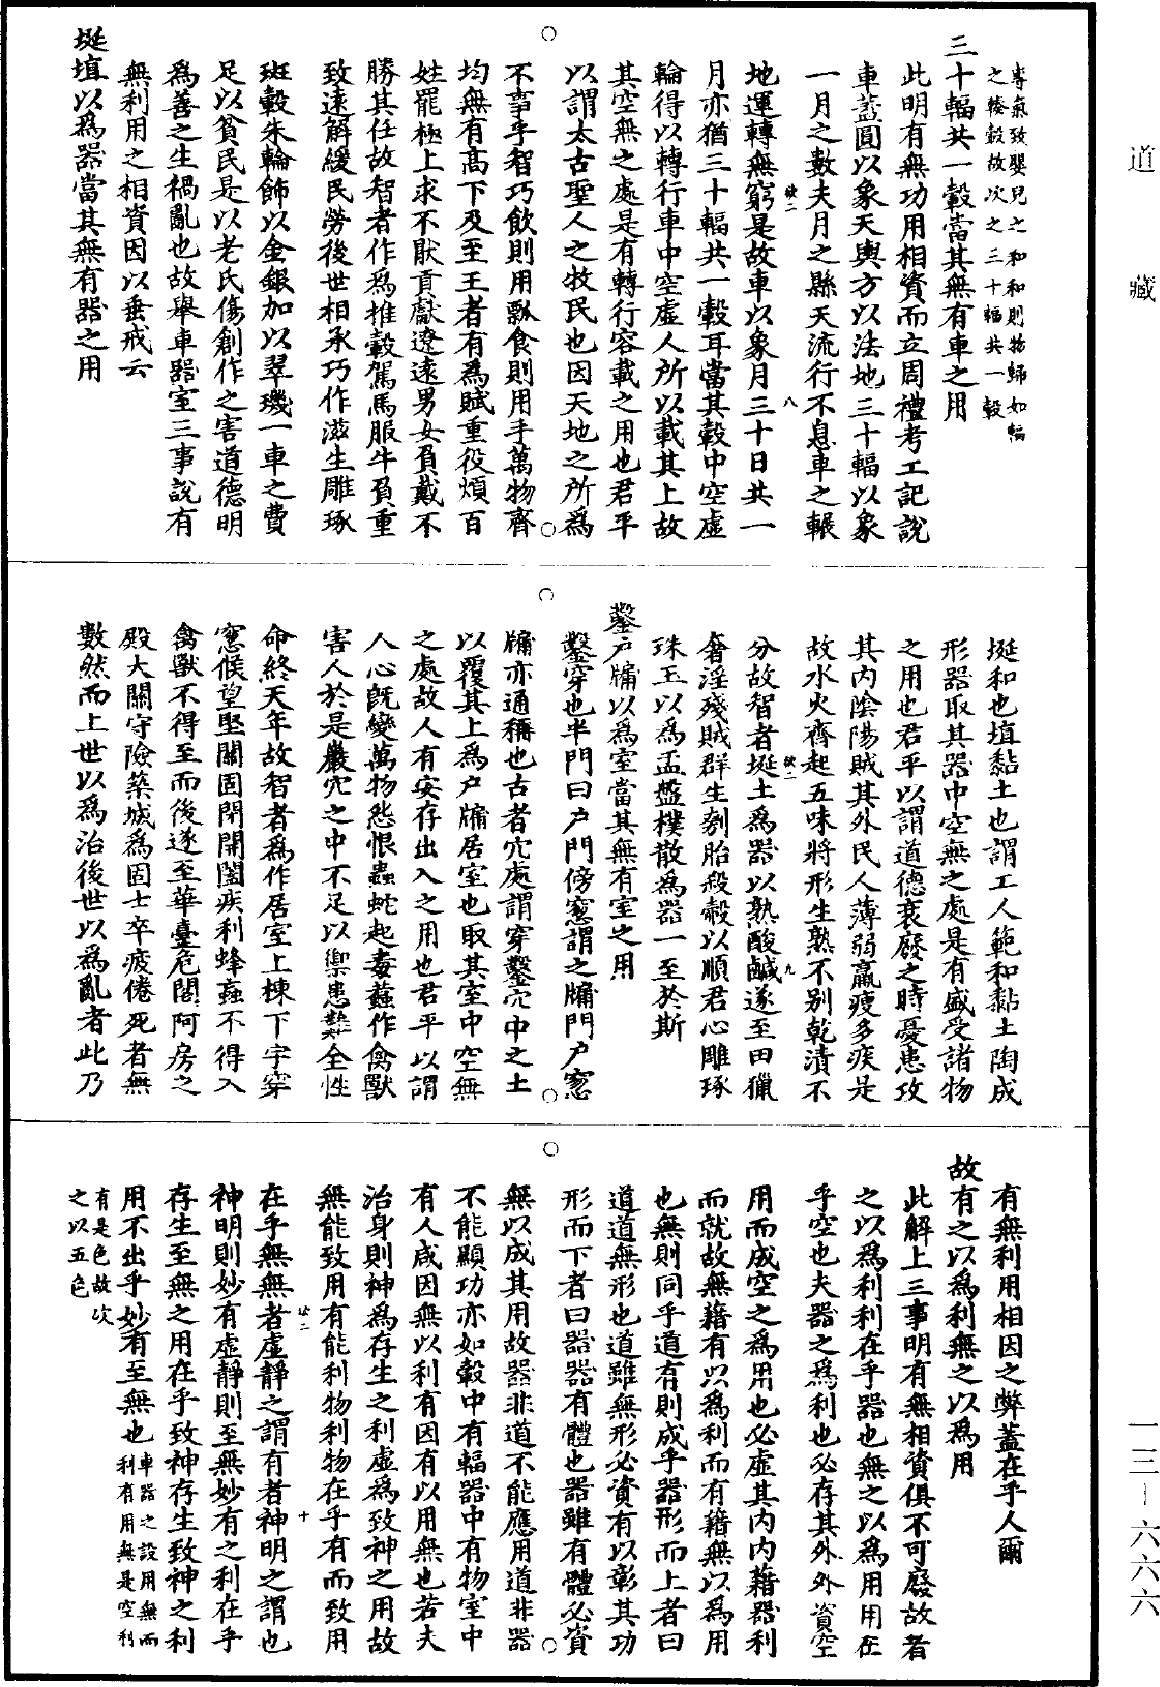 道藏
專氣致嬰兒之和和則物歸如輻
之湊轂故次之三十輻共一轂
三十輻共一轂當其無有車之用
此明有無功用相資而立周禮考工記說
車蓋圓以象天輿方以法地三十輻以象
一月之數夫月之縣天流行不息車之輾
欲二
八
地運轉無窮是故車以象月三十日共一
月亦猶三十輻共一轂耳當其轂中空虛
輪得以轉行車中空虛人所以載其上故
其空無之處是有轉行容載之用也君平
以謂太古聖人之牧民也因天地之所為
不事乎智巧飲則用瓢食則用手萬物齊
均無有高下及至王者有為賦重役煩百
姓罷極上求不猒貢獻遼遠男女負戴不
勝其任故智者作為推轂駕馬服牛負重
致遠解緩民勞後世相承巧作滋生雕琢
斑轂朱輪飾以金銀加以翠璣一車之費
足以貧民是以老氏傷創作之害道德明
為善之生禍亂也故舉車器室三事說有
無利用之相資因以垂戒云
埏埴以為器當其無有器之用
埏和也埴黏土也謂工人範和黏土陶成
形器取其器中空無之處是有盛受諸物
之用也君平以謂道德衰廢之時憂患攻
其內陰陽賊其外民人薄弱羸瘦多疾是
故水火齊起五味將形生熟不別乾漬不
欲二
九
分故智者埏土為器以熟酸鹹遂至田獵
奢淫殘賊群生刳胎殺鷇以順君心雕琢
珠玉以為盂盤樸散為器一至於斯
鑿戶牖以為室當其無有室之用
鑿穿也半門曰戶門傍窻謂之牖門戶窻
牖亦通稱也古者穴處謂穿鑿穴中之土
以覆其上為戶牖居室也取其室中空無
之處故人有安存出入之用也君平以謂
人心旣變萬物怨恨蟲蛇起毒蠚作禽獸
害人於是巖穴之中不足以禦患難全性
命終天年故智者為作居室上棟下宇穿
窻候望堅關固閉開闔疾利蜂蠆不得入
禽獸不得至而後遂至華臺危閣阿房之
殿大關守險築城為固士卒疲倦死者無
數然而上世以為治後世以為亂者此乃
有無利用相因之弊蓋在乎人爾
故有之以為利無之以為用
此解上三事明有無相資俱不可廢故者
之以為利利在乎器也無之以為用用在
乎空也夫器之為利也必存其外外資空
用而成空之為用也必虛其內內藉器利
而就故無藉有以為利而有藉無以為用
也無則同乎道有則成乎器形而上者曰
道道無形也道雖無形必資有以彰其功
形而下者曰器器有體也器雖有體必資
無以成其用故器非道不能應用道非器
不能顯功亦如轂中有輻器中有物室中
有人咸因無以利有因有以用無也若夫
治身則神為存生之利虛為致神之用故
無能致用有能利物利物在乎有而致用
欲二
十
在乎無無者虛靜之謂有者神明之謂也
神明則妙有虛靜則至無妙有之利在乎
存生至無之用在乎致神存生致神之利
用不出乎妙有至無也車器之設用無而
利有用無是空利
有是色故次
之以五色
一三—六六六